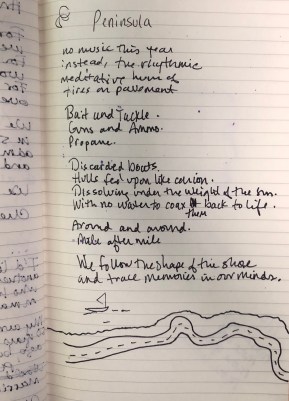 Peninsula
no music this year
instead, the rhythmic
meditative hum of
tires on pavement
Bait and Tackle.
Guns and Ammo.
Propane.
Discarded boats.
Hulls fed upon like carrion.
Dissolving under the weight of the sun.
With no water to coax them back to life.
Around and around.
Mile after mile
We follow the shape of the shore
and trace memories in our minds.